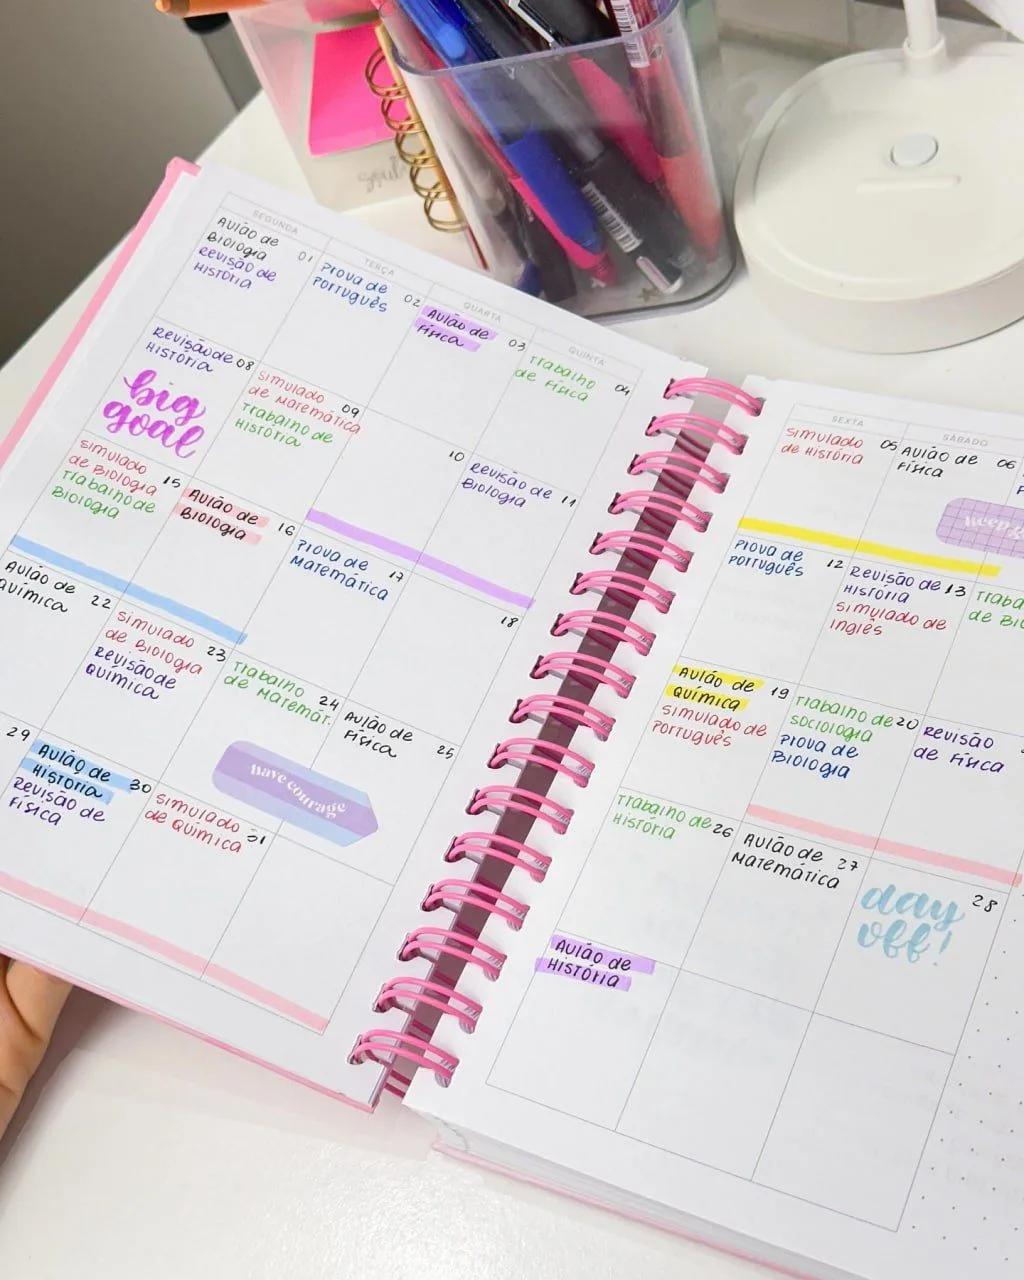 SEGUNDA
TERÇA
QUARTA
QUINTA
SEXTA
SÁBADO
AULÃO DE
BIOLOGIA
REVISÃO DE
HISTÓRIA
01
PROVA DE
PORTUGUÊS
02
AULÃO DE
FÍSICA
03
TRABALHO
DE FÍSICA
04
SIMULADO
DE HISTÓRIA
05
AULÃO DE
FÍSICA
06
REVISÃO DE
HISTÓRIA
08
big
goal
SIMULADO
DE MATEMÁTICA
TRABALHO DE
HISTÓRIA
09
10
REVISÃO DE
BIOLOGIA
11
PROVA DE
PORTUGUÊS
12
REVISÃO DE
HISTÓRIA
SIMULADO DE
INGLÊS
13
SIMULADO
DE BIOLOGIA
TRABALHO DE
BIOLOGIA
15
AULÃO DE
BIOLOGIA
16
PROVA DE
MATEMÁTICA
17
18
AULÃO DE
QUÍMICA
SIMULADO DE
PORTUGUÊS
19
TRABALHO DE
SOCIOLOGIA
PROVA DE
BIOLOGIA
20
REVISÃO
DE FÍSICA
AULÃO DE
QUÍMICA
22
SIMULADO
DE BIOLOGIA
REVISÃO DE
QUÍMICA
23
TRABALHO
DE MATEMÁT.
24
have courage
AULÃO DE
FÍSICA
25
TRABALHO DE
HISTÓRIA
26
AULÃO DE
MATEMÁTICA
27
day
off!
28
29
AULÃO DE
HISTÓRIA
REVISÃO DE
FÍSICA
30
SIMULADO
DE QUÍMICA
31
AULÃO DE
HISTÓRIA